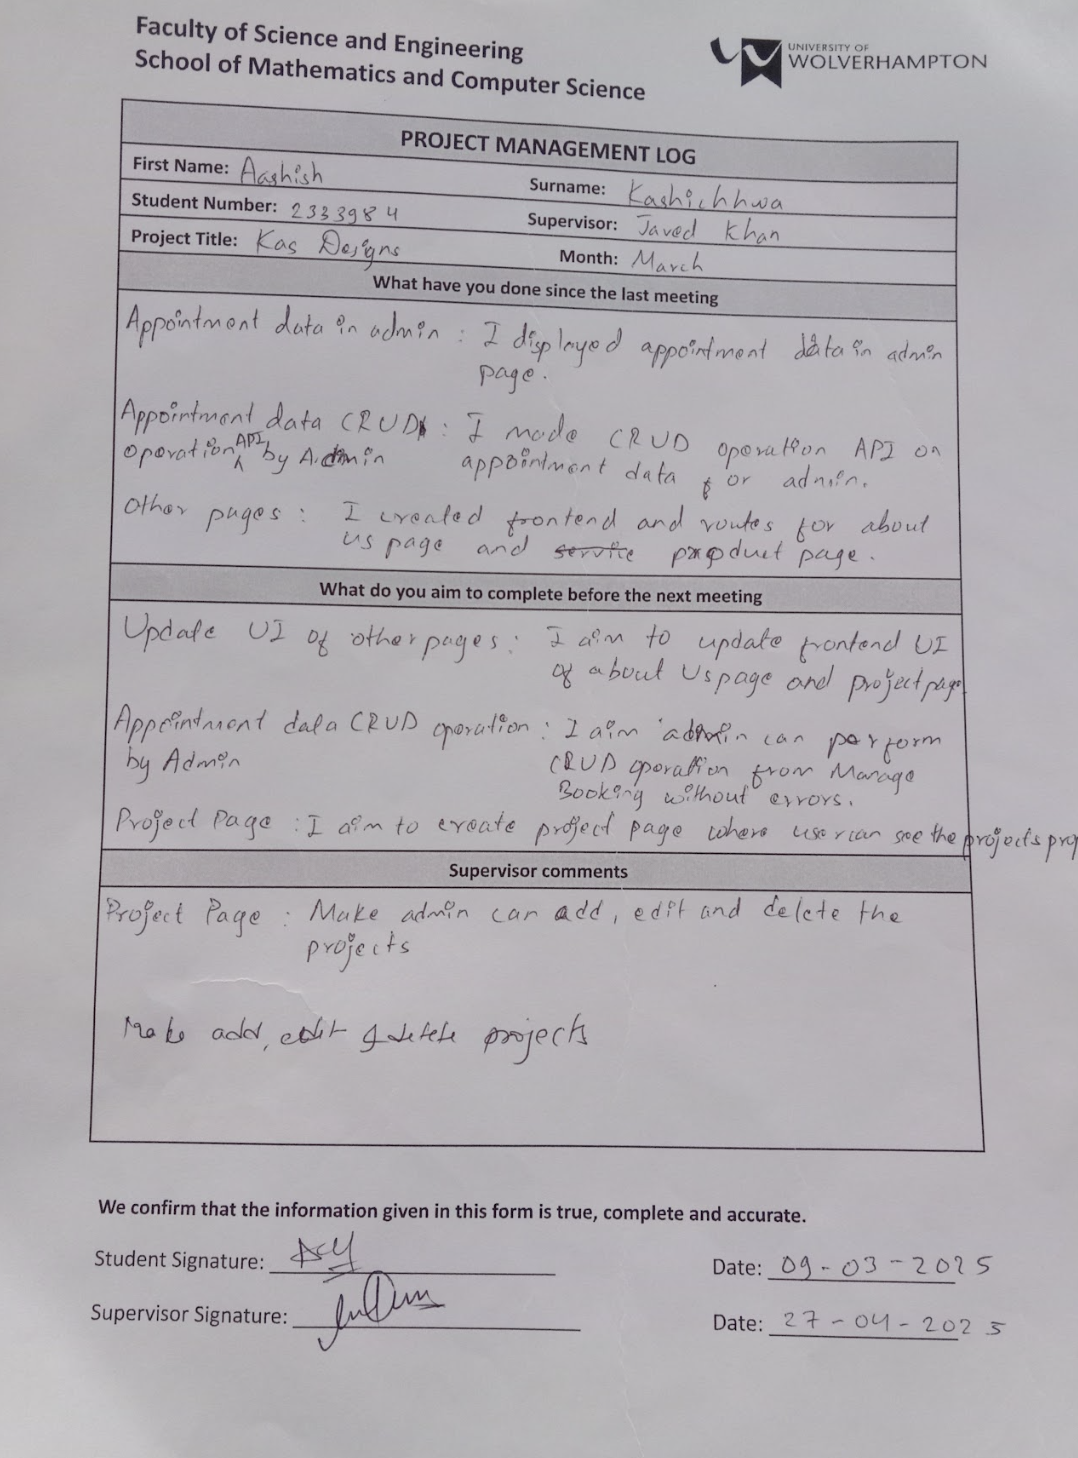 Faculty of Science and Engineering
School of Mathematics and Computer Science
UNIVERSITY OF
WOLVERHAMPTON
PROJECT MANAGEMENT LOG
First Name: Aashish
Surname: Kashichhwa
Student Number: 2333984
Supervisor: Javed Khan
Project Title: Kas Designs
Month: March
What have you done since the last meeting
Appointment data in admin : I displayed appointment data in admin
page.
Appointment data CRUD : I made CRUD operation API on
operation API by Admin appointment data for admin.
Other pages : I created frontend and routes for about
us page and service product page.
What do you aim to complete before the next meeting
Update UI of other pages : I aim to update frontend UI
of about Us page and project page
Appointment data CRUD operation : I aim admin can perform
by Admin CRUD operation from Manage
Booking without errors.
Project Page : I aim to create project page where user can see the projects
Supervisor comments
Project Page : Make admin can add, edit and delete the
projects
Make add, edit & delete projects
We confirm that the information given in this form is true, complete and accurate.
Student Signature:
Date: 09-03-2025
Supervisor Signature:
Date: 27-04-2025